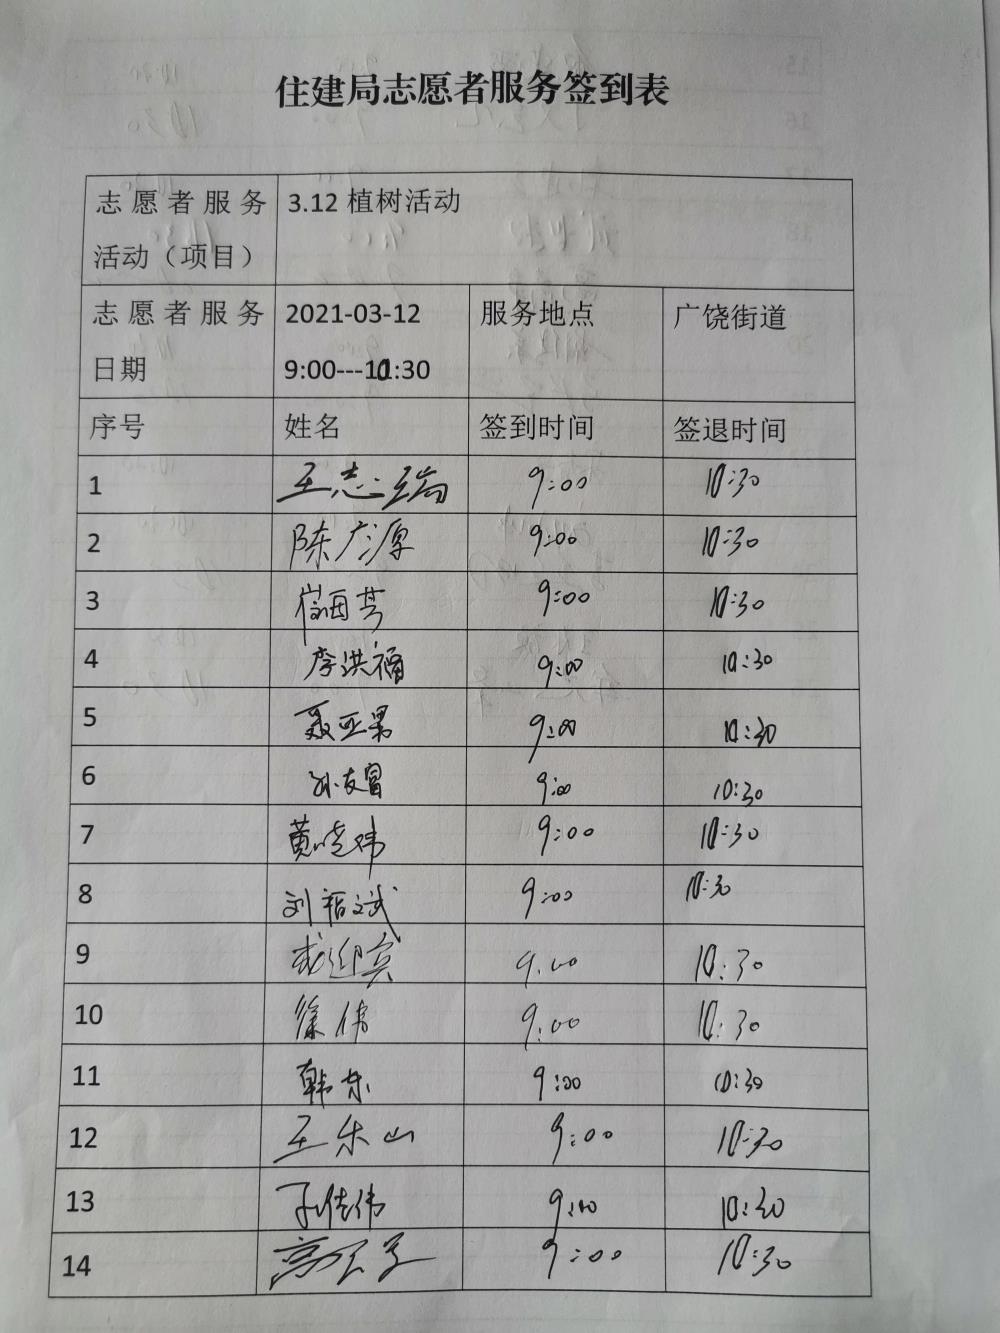 住建局志愿者服务签到表
志愿者服务 3.12 植树活动
活动（项目）
志愿者服务 2021-03-12 服务地点 广饶街道
日期 9:00---10:30
序号 姓名 签到时间 签退时间
1 王志瑞 9:00 10:30
2 陈广源 9:00 10:30
3 9:00 10:30
4 李洪福 9:00 10:30
5 聂亚男 9:00 10:30
6 孙友富 9:00 10:30
7 黄晓玮 9:00 10:30
8 刘福斌 9:00 10:30
9 成迎宾 9:00 10:30
10 徐伟 9:00 10:30
11 韩东 9:00 10:30
12 王乐山 9:00 10:30
13 9:00 10:30
14 9:00 10:30